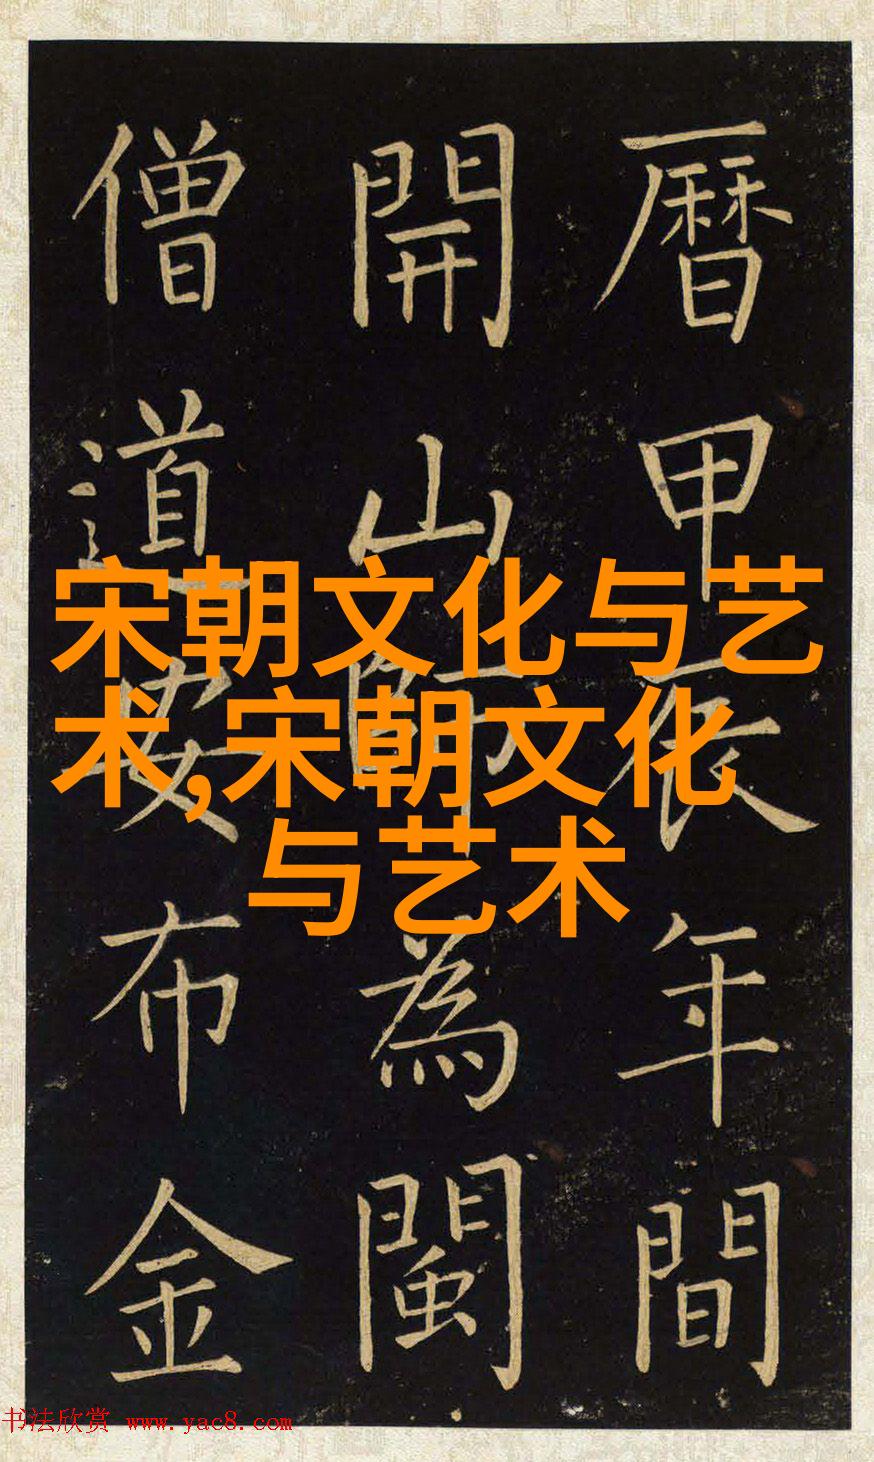 曆甲辰年間
開山師為閩
僧道布金
宋朝文化与艺
术,宋朝文化
与艺术
书法欣赏 www.yac8.com